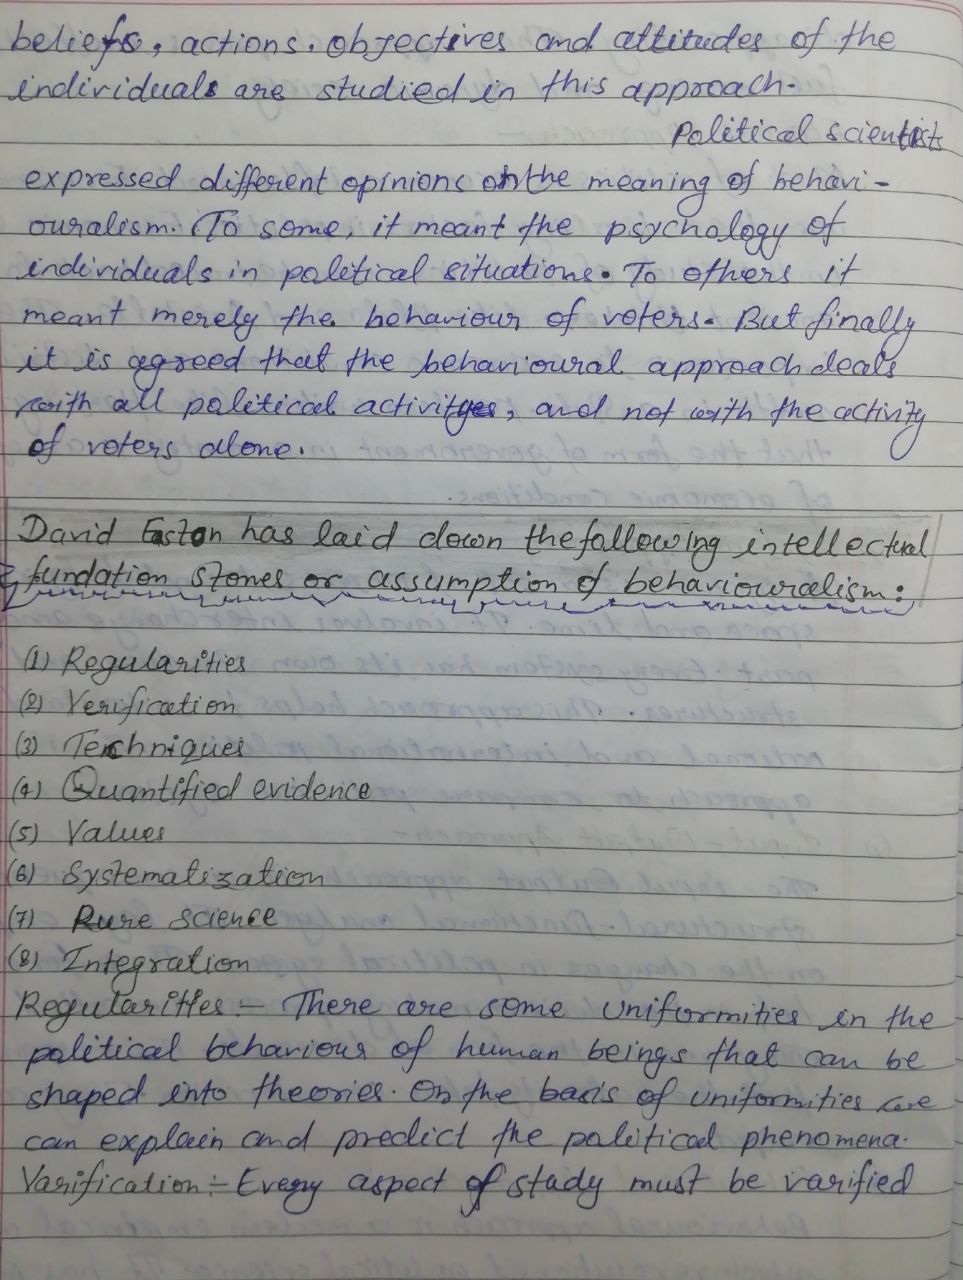 beliefs, actions, objectives and attitudes of the
individuals are studied in this approach.
Political scientists
expressed different opinions on the meaning of behavi-
ouralism. To some, it meant the psychology of
individuals in political situations. To others it
meant merely the behaviour of voters. But finally
it is agreed that the behavioural approach deals
with all political activityes, and not with the activity
of voters alone.
David Easton has laid down the following intellectual
fundation stones or assumption of behaviouralism:
(1) Regularities
(2) Verification
(3) Techniques
(4) Quantified evidence
(5) Values
(6) Systematization
(7) Pure science
(8) Integration
Regularities - There are some uniformities in the
political behaviour of human beings that can be
shaped into theories. On the basis of uniformities we
can explain and predict the political phenomena.
Varification :- Every aspect of study must be varified